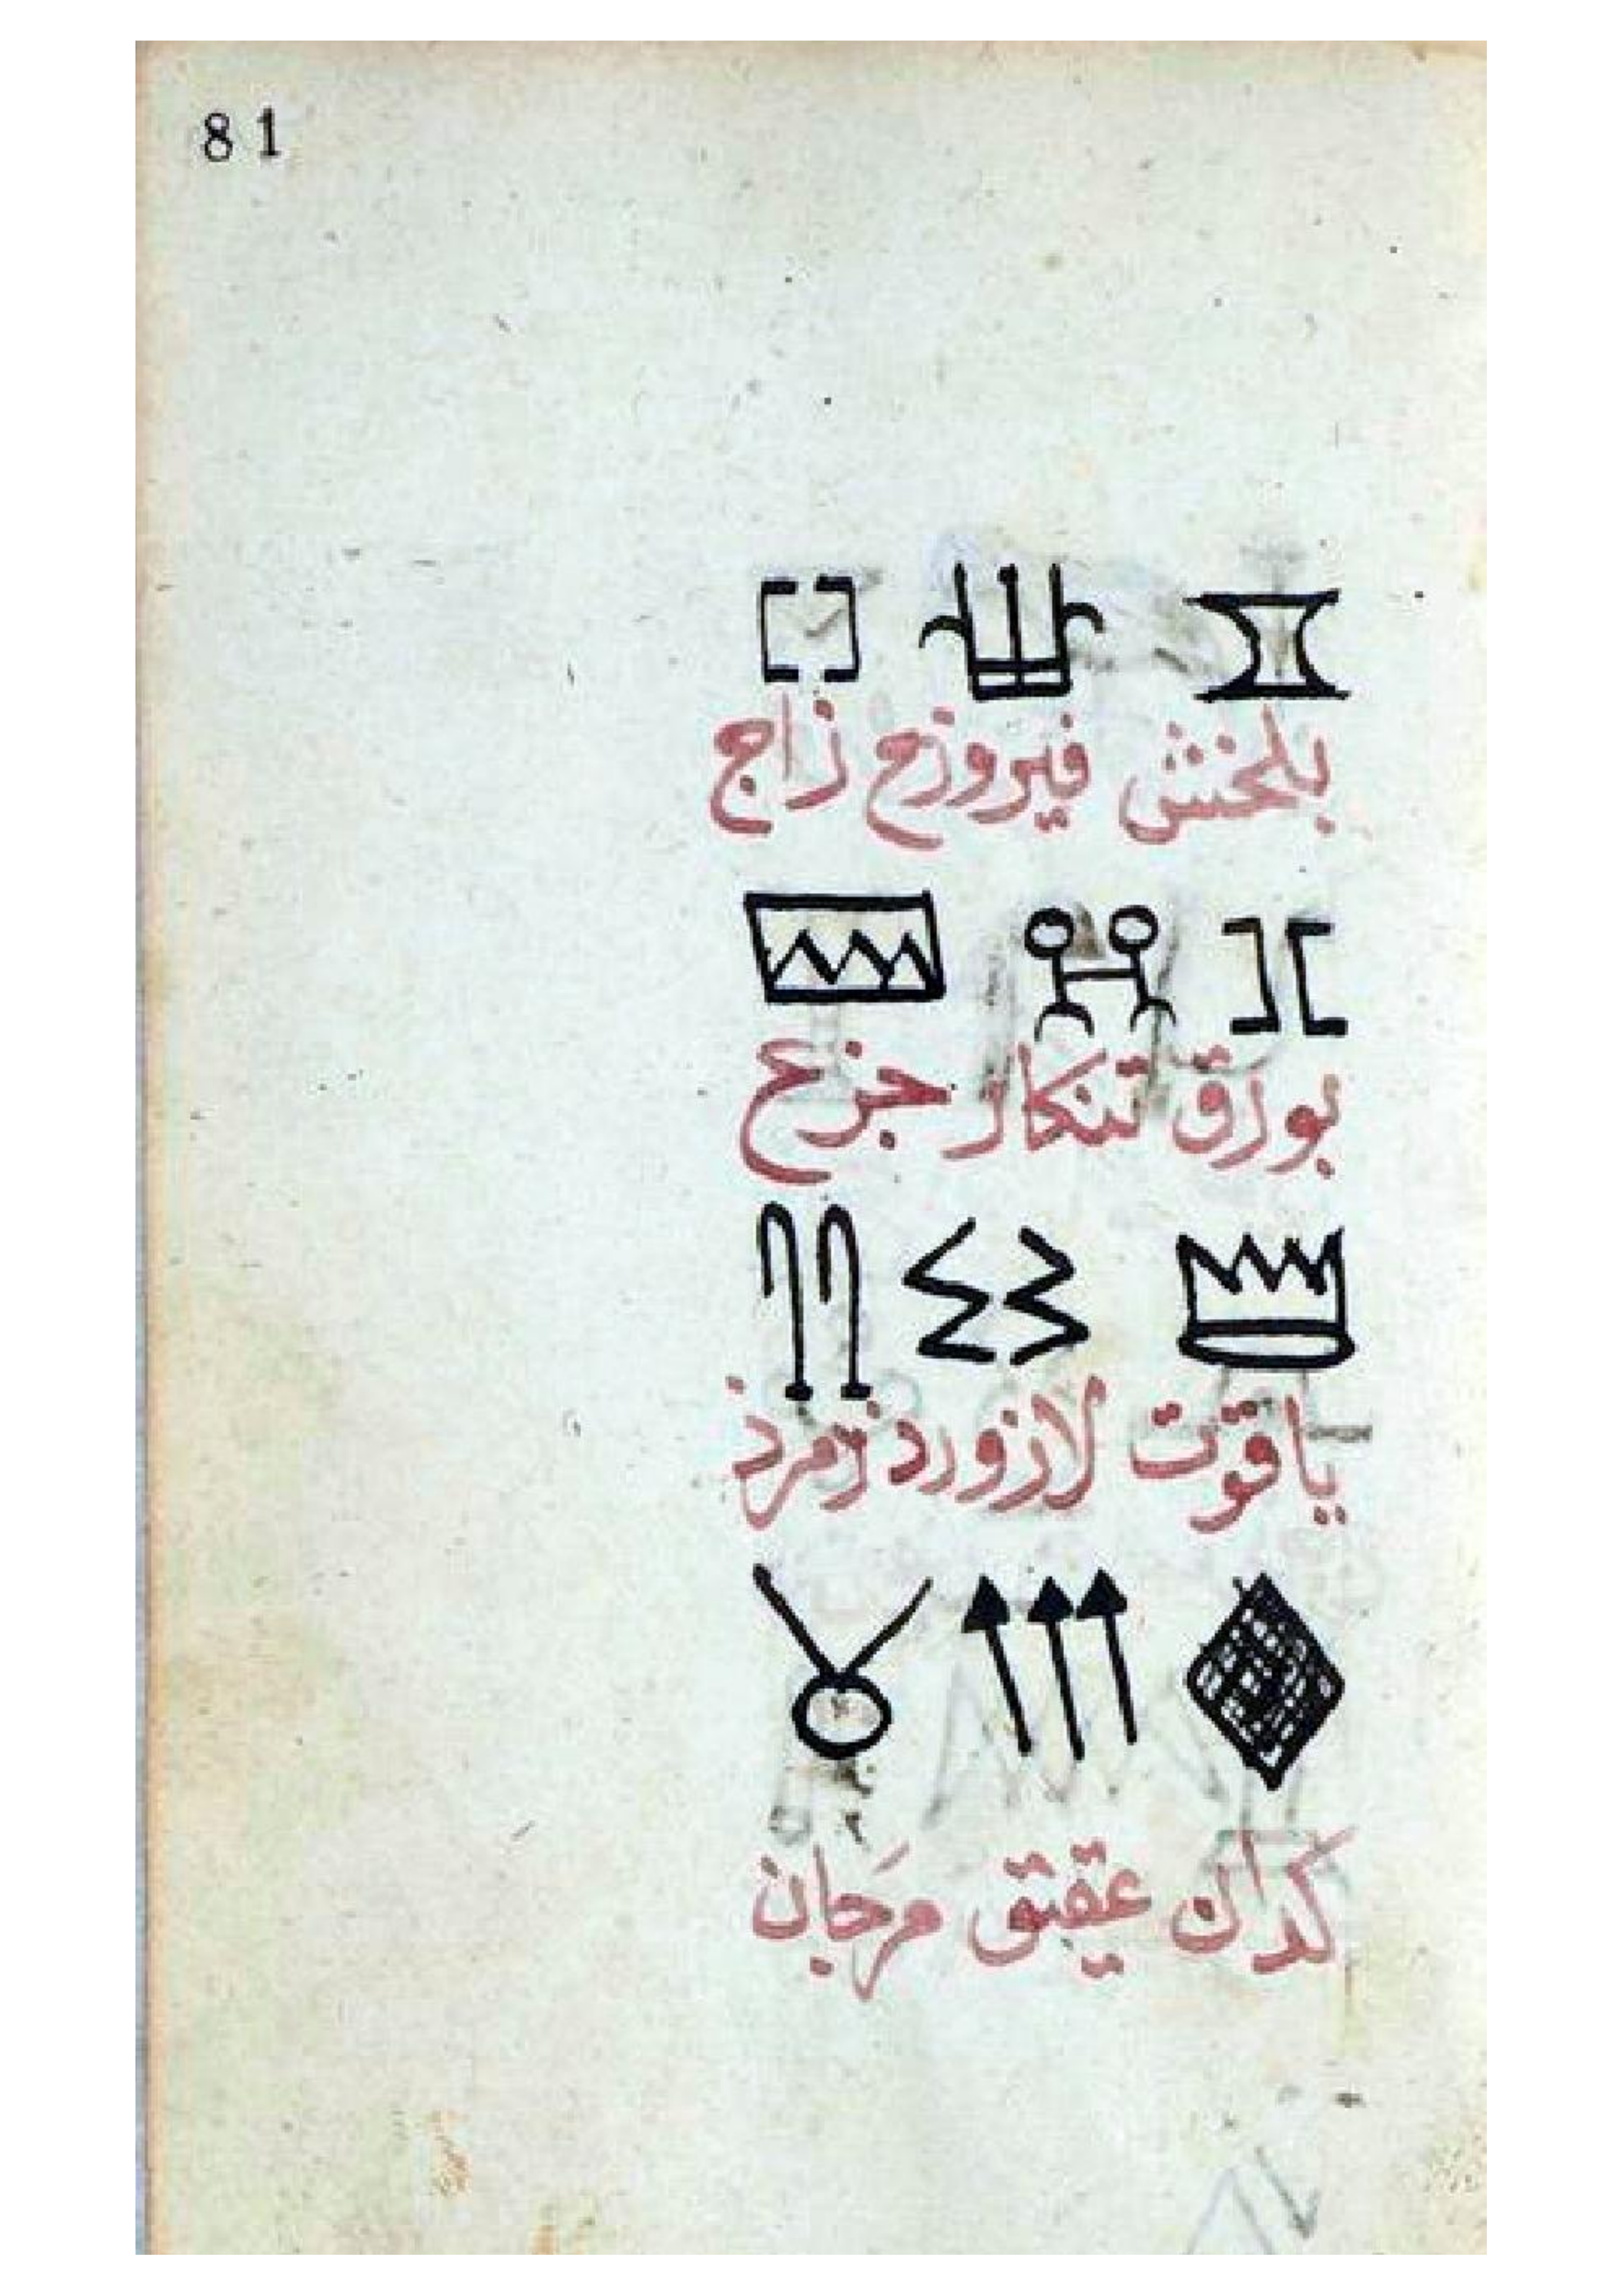 81
بلخش فيروزج زاج
بورق تنكار جزع
ياقوت لازورد زمرذ
كدان عقيق مرجان